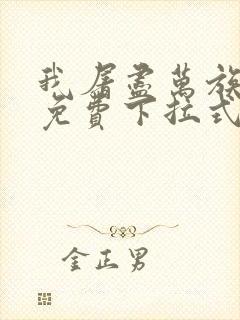 我屠盡萬族
免費下拉式
金正男